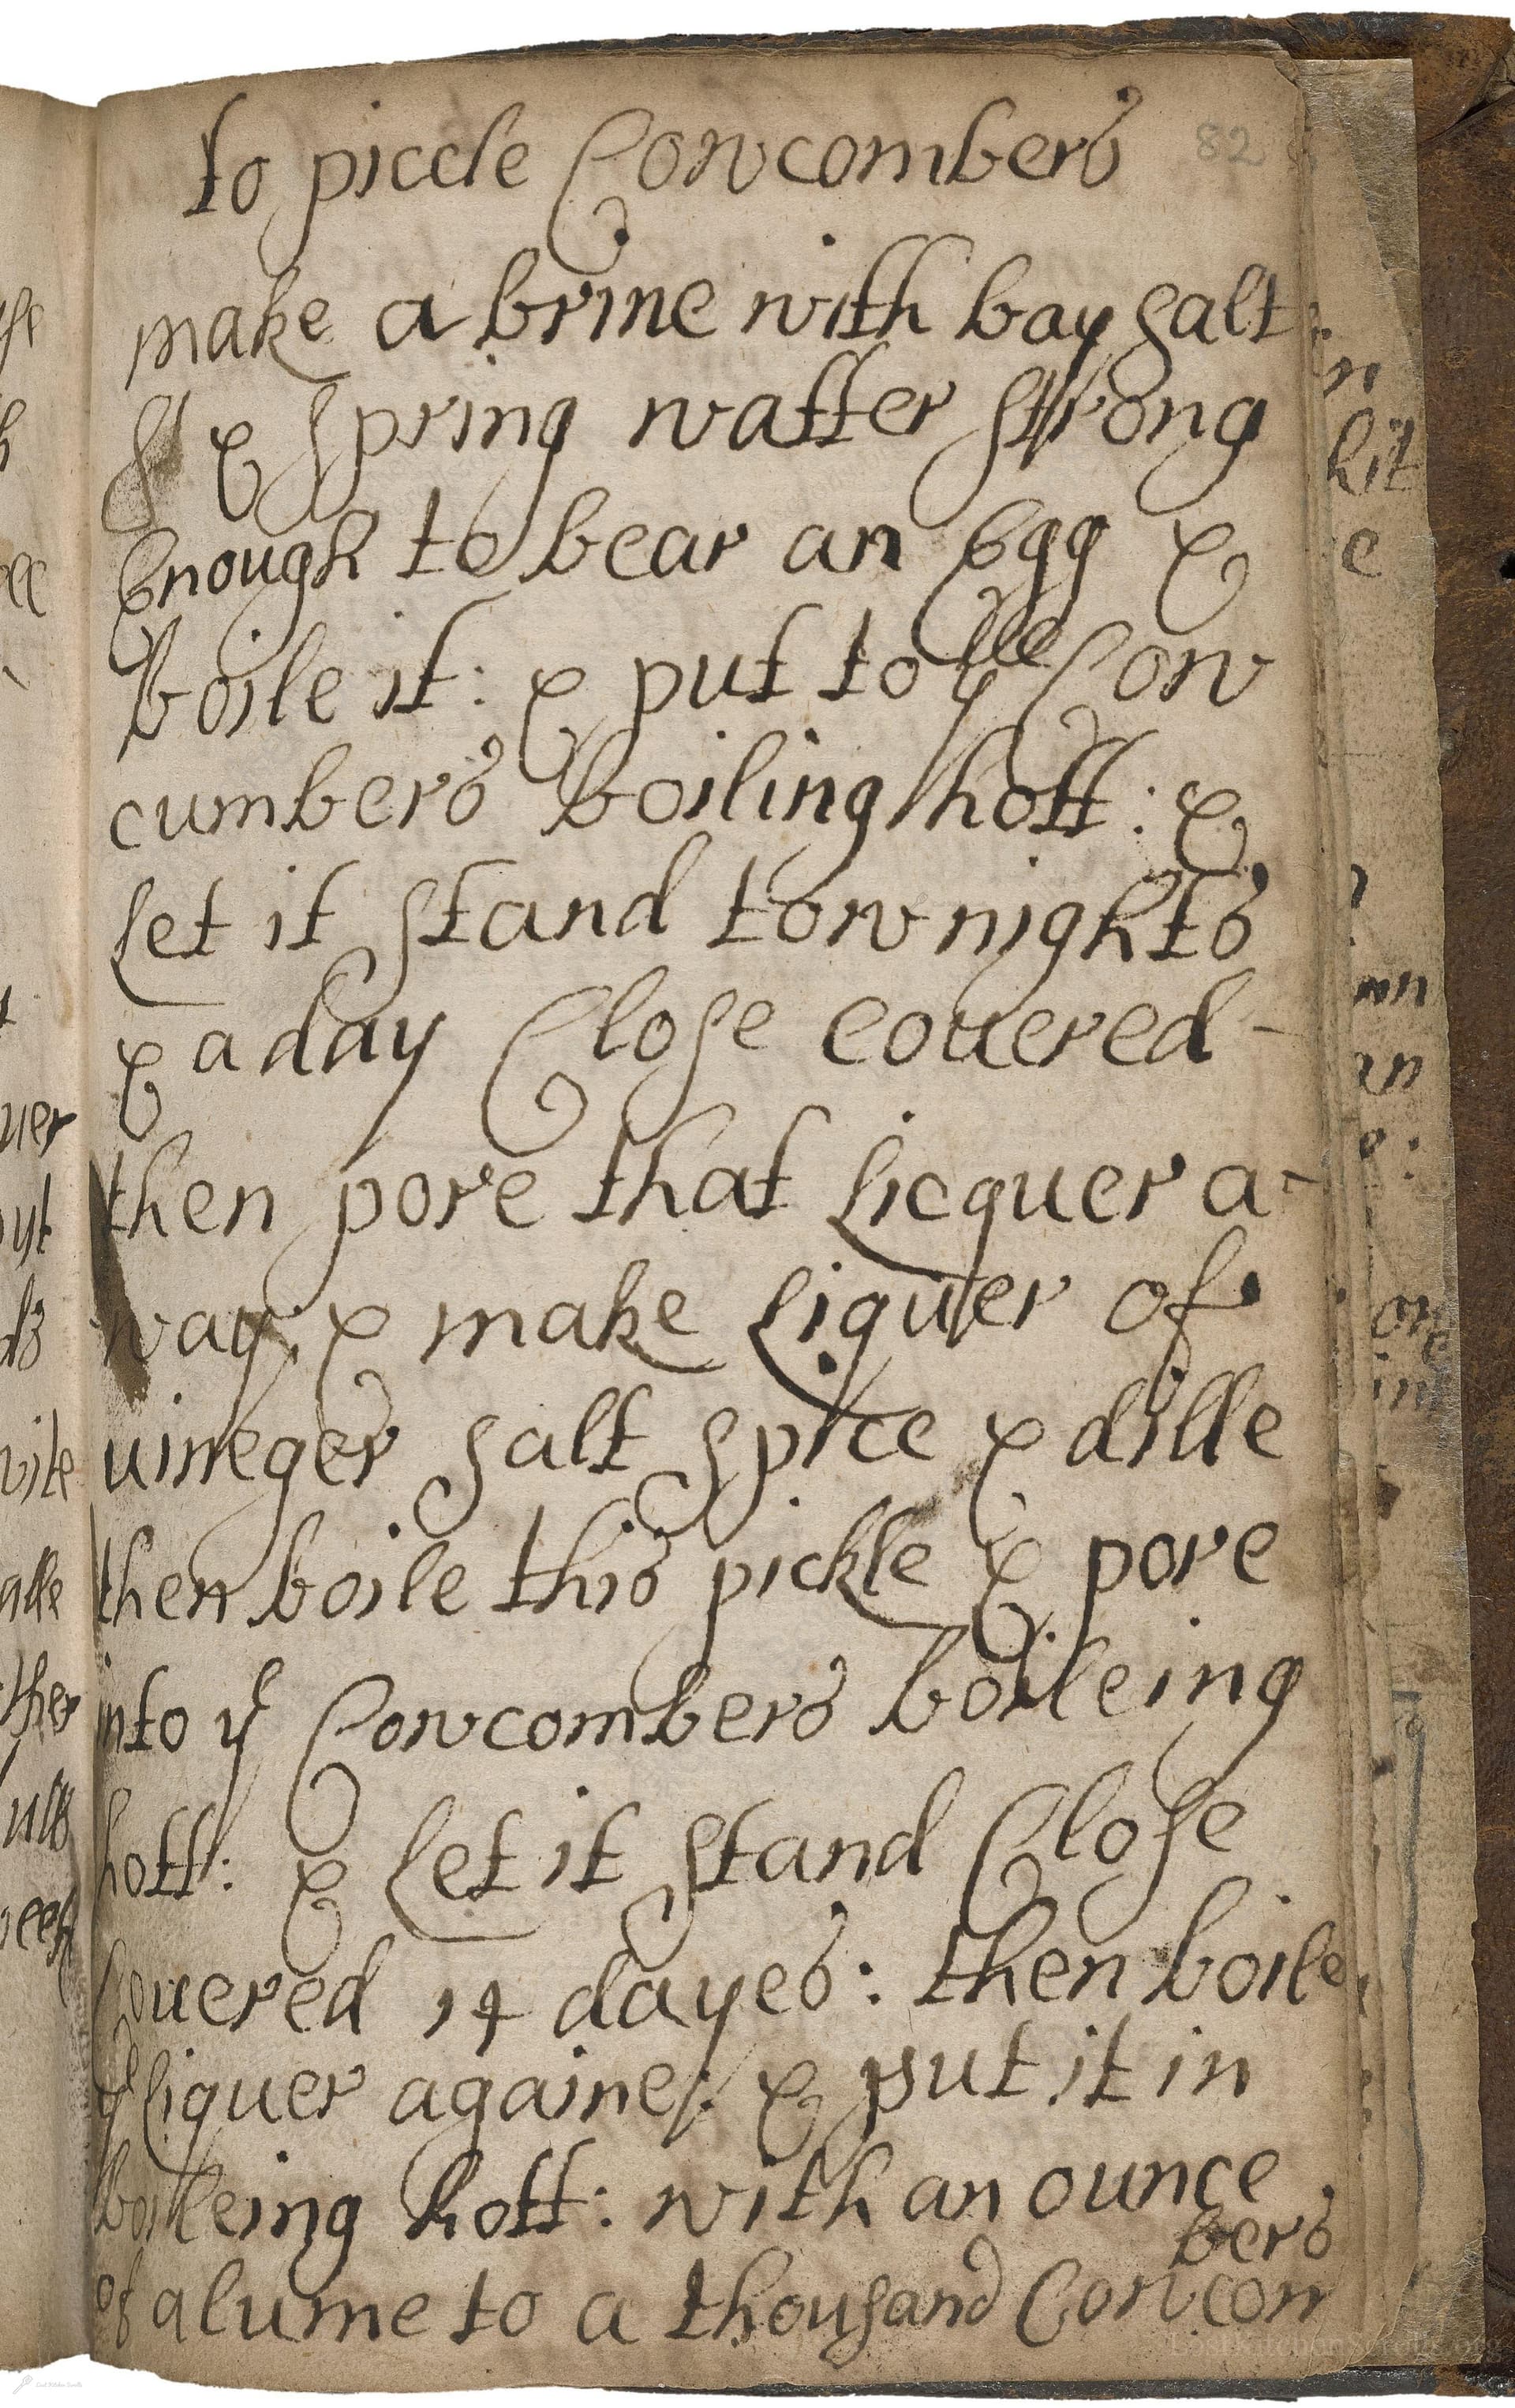 to piccle Cowcombers
82
make a brine with bay salt
& spring watter strong
Enough to bear an Egg &
boile it: & put to ye Cow
cumbers boiling hott: &
Let it stand tow nights
& a day Close couered -
then pore that Licquer a-
way & make Liquer of
uineger salt spice & dille
then boile this pickle & pore
into ye Cowcombers boileing
hott: & Let it stand Close
Couered 14 dayes: then boile
ye liquer againe: & put it in
boileing hott: with an ounce
bers
of alume to a thousand Cowcom